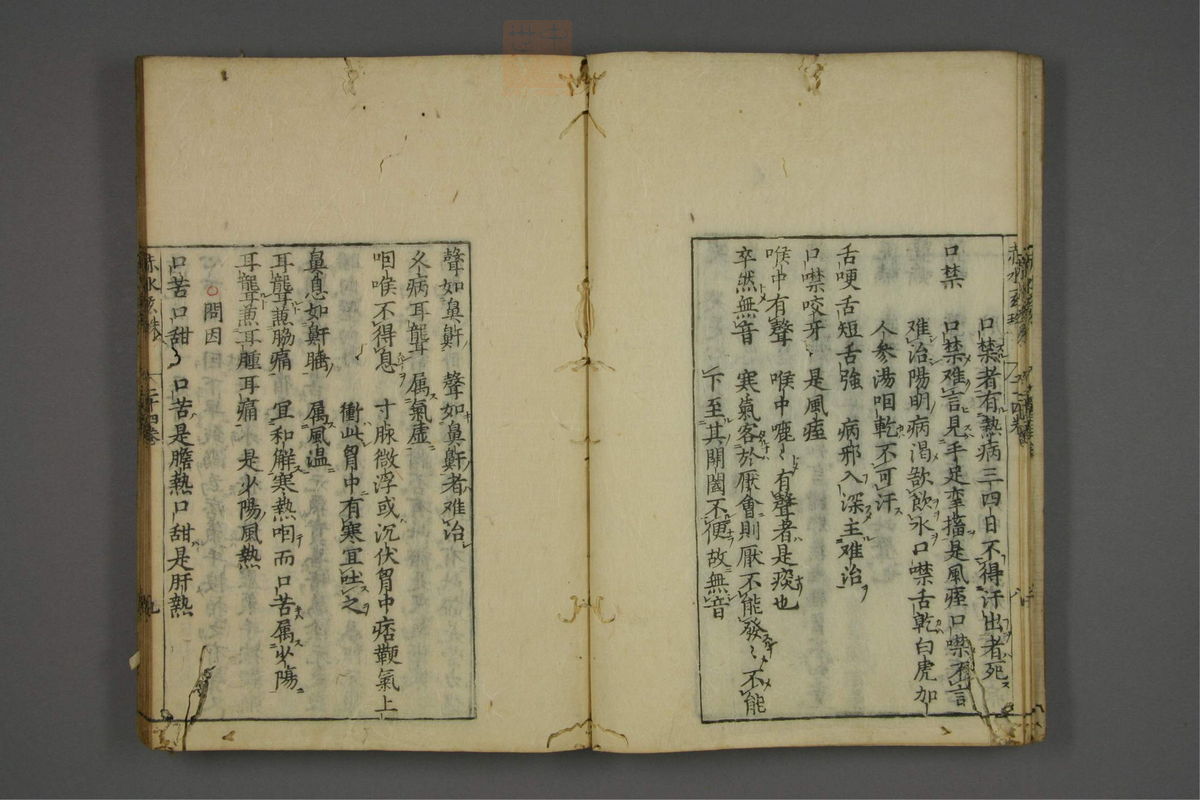 口禁者有熱病三四日不得汗出者死
口禁 口禁难言見手足挛搐是風痓口噤不言
难治陽明病渇欲飲水口噤舌乾白虎加
人参湯咽乾不可汗
舌哽舌短舌強 病邪入深主难治
口噤咬牙 是風痓
喉中有聲 喉中嘊〻有聲者是痰也
卒然無音 寒氣客於厭會則厭不能發〻不能
下至其開闔不便故無音
聲如鼻鼾 聲如鼻鼾者难治
久病耳聾 属氣虛
咽喉不得息 寸脉微浮或沉伏胷中痞鞕氣上
衝此胷中有寒宜吐之
鼻息如鼾睡 属風温
耳聾耳䓤脇痛 宜和解寒熱咽而口苦属少陽
耳聾耳䓤耳腫耳痛 是少陽風熱
問因
口苦口甜 口苦是膽熱口甜是肝熱
赤水玄珠 二十四卷 九